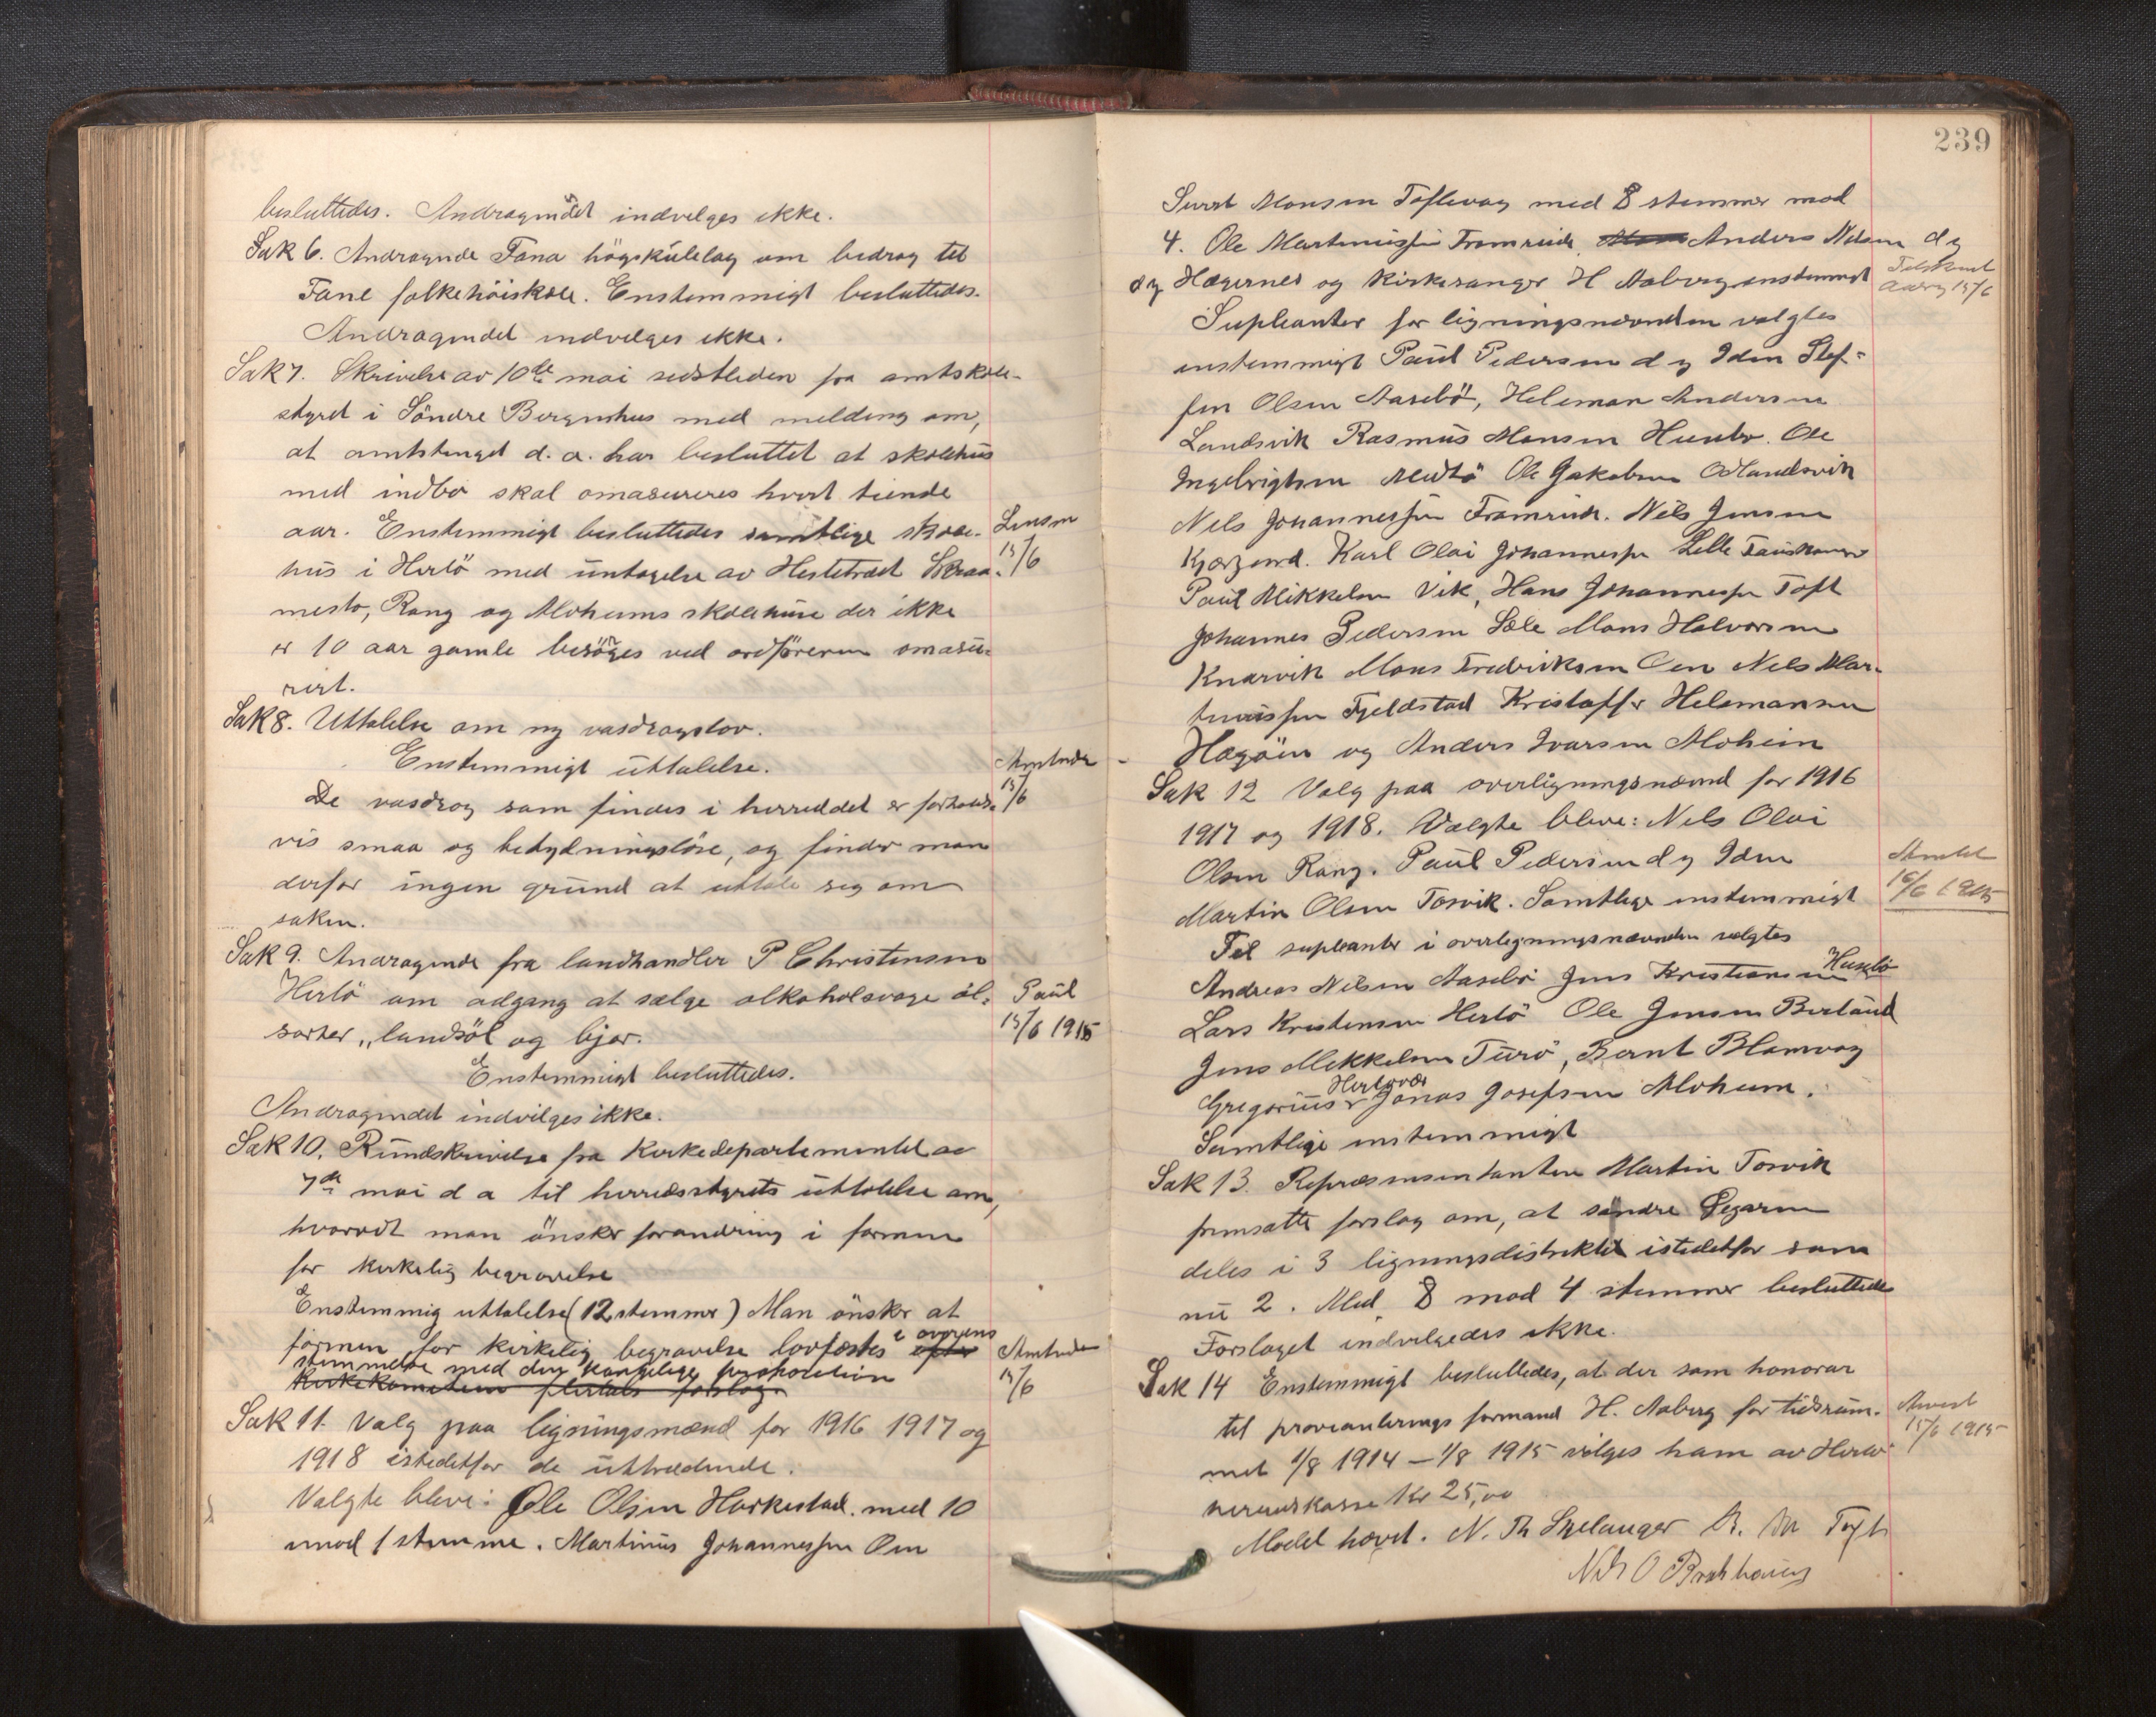 besluttedes. Andragendet indvilges ikke.
Sak 6. Andragende Fana högskúlelag om bedrag til
Fane folkehöiskole. Enstemmigt besluttedes.
Andragendet indvilges ikke.
Sak 7. Skrivelse av 10de mai sidstleden fra amtskole-
styret i Söndre Bergenhus med melding om,
at amtstinget d. a. har besluttet at skolehus
med indbo skal omasureres hvert tiende
aar. Enstemmigt besluttedes samtlige skole-
Lensm
15/6
hus i Herlö med undtagelse av Hestetræet
mesto, Rong og Alvheims skolehuse der ikke
er 10 aar gamle besöges ved ordföreren omasu-
rert.
Sak 8. Uttalelse om ny vasdragslov.
Enstemmigt uttalelse.
Amtmd
15/6
De vasdrag som findes i herreddet er forholds-
vis smaa og betydningslöse, og finder man
derfor ingen grund at uttale seg om
saken.
Sak 9. Andragende fra landhandler P Christensen
Herlö om adgang at sælge alkoholsvage öl-
sorter, „landsöl og bjor.
Paul
15/6 1915
Enstemmigt besluttedes.
Andragendet indvilges ikke.
Sak 10. Rundskrivelse fra Kirkedepartementet av
7de mai d a til herredsstyrets uttalelse om,
hvorvidt man önsker forandring i formen
for kirkelig begravelse
Enstemmig uttalelse (12 stemmer) Man önsker at
formen for kirkelig begravelse lovfæstes efter i overens
stemmelse med den kongelige proposition
Kirkekomiteens flertals forslag.
Amtmd
15/6
Sak 11. Valg paa ligningsmænd for 1916 1917 og
1918 istedetfor de uttrædende.
Valgte bleve: Ole Olsen Harkestad med 10
mod 1 stemme. Martinus Johannessen Oen
239
Sivert Monsen Toftevag med 8 stemmer mod
4. Ole Martinussen Fromreide Anders Nilsen d y
d y Hægernes og Kirkesanger H Aaberg enstemmigt
Tilskrevet
Aaberg 15/6
Supleanter for ligningsnævnden valgtes
enstemmigt Paul Pedersen d y Iden Stef-
fen Olsen Aasebö, Heleman Andersen
Landsvik Rasmus Monsen Husebö. Ole
Ingebrigtsen Midtö Ole Jakobsen Oddlandsvik
Nils Johannessen Fromreide. Nils Jensen
Kjærgaard. Karl Olai Johannessen Lille Fauskanger
Paul Mikkelsen Vik, Hans Johannessen Toft
Johannes Pedersen Sæle Mons Halvorsen
Knarvik Mons Fredriksen Oen Nils Mar-
tinussen Fjeldstad Kristoffer Helemansen
Hagöen og Anders Ivarsen Alvheim
Sak 12 Valg paa overligningsnævnd for 1916
1917 og 1918. Valgte bleve: Nils Olai
Olsen Rong. Paul Pedersen d y Iden
Martin Olsen Torvik. Samtlige enstemmigt
Amtet
16/6 1915
Til supleanter i overligningsnævnden valgtes
Andreas Nilsen Aasebö Jens Kristiansen Husebö
Lars Kristensen Herlö Ole Jensen Berland
Jens Mikkelsen Turö, Bernt Blomvag
Gregorius Herlövær Jonas Josefsen Alvheim.
Samtlige enstemmigt
Sak 13. Repræsentanten Martin Torvik
fremsatte forslag om, at söndre
deles i 3 ligningsdistrikter istedetfor som
nu 2. Med 8 mod 4 stemmer besluttedes
Forslaget indvilgedes ikke.
Sak 14 Enstemmigt besluttedes, at der som honorar
til provianterings formand H. Aaberg for tidsrum-
Anvist
15/6 1915
met 1/8 1914 – 1/8 1915 vilges ham av Herlö
herredskasse Kr 25,00
Mödet hævet. N. Th Skjelanger